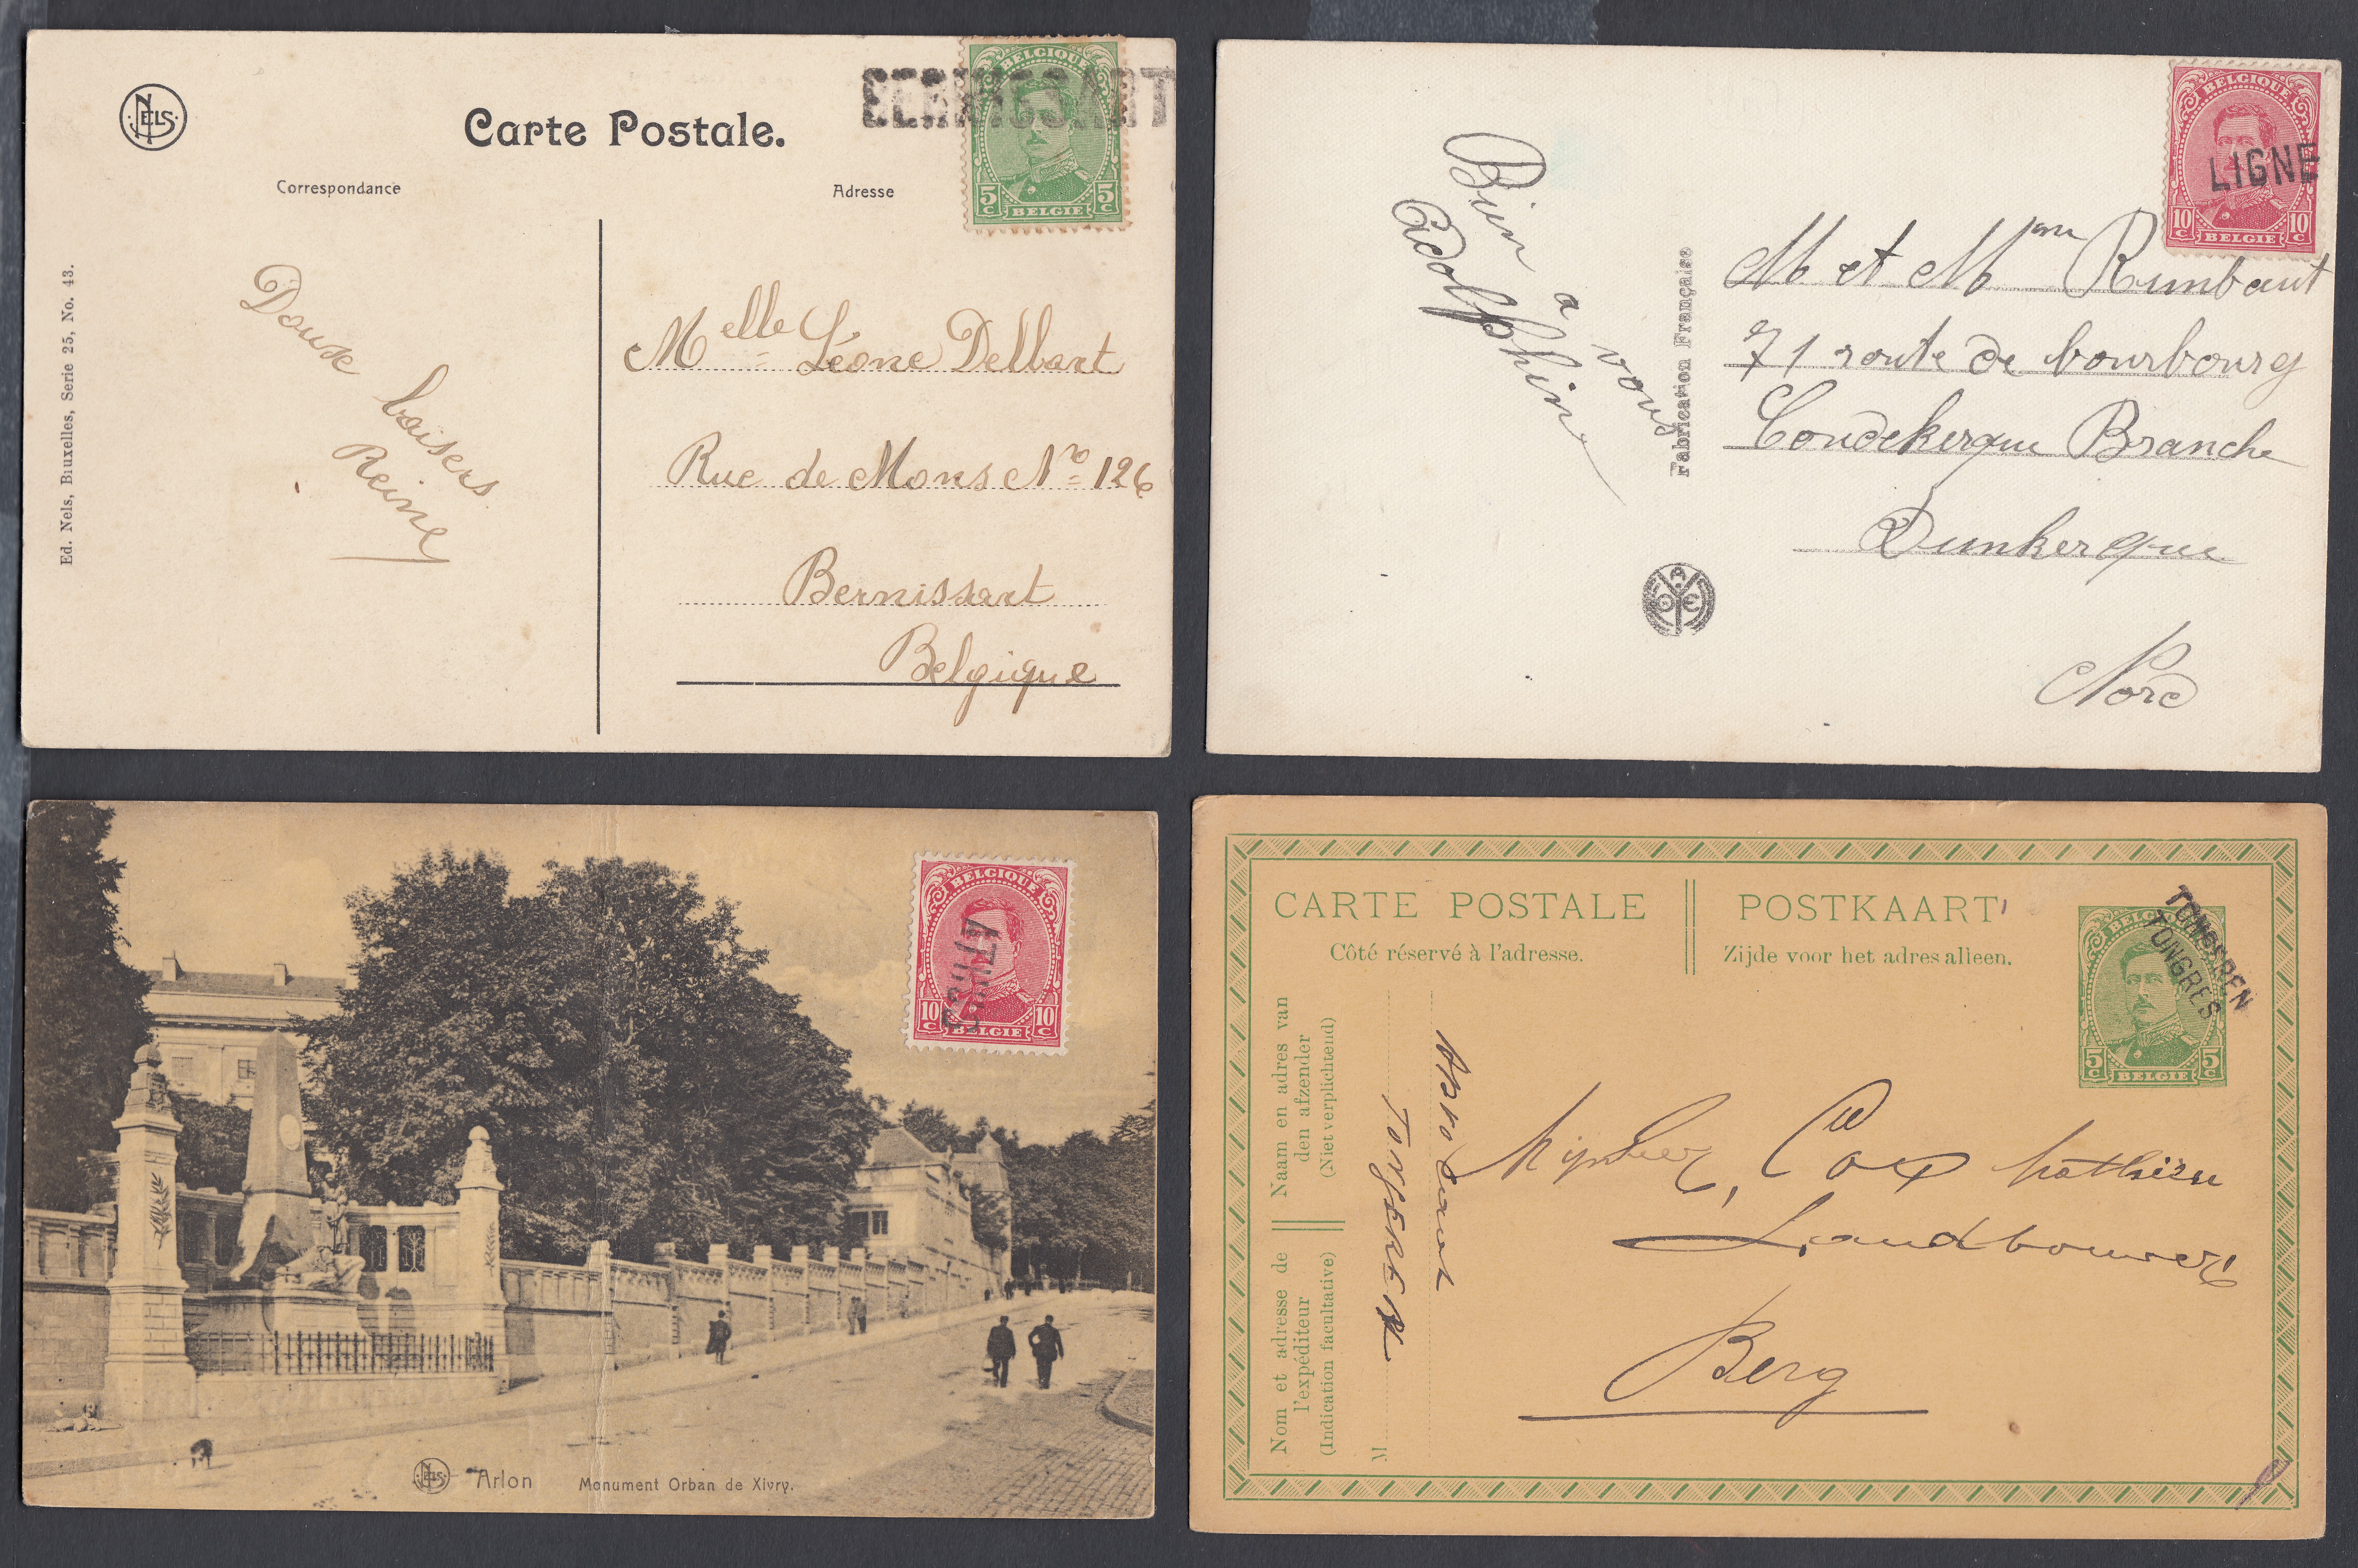 NELS
Carte Postale.
Correspondance
Adresse
BELGIQUE
5 C 5 C
BELGIE
BERNISSART
Ed. Nels, Bruxelles, Serie 25, No. 43.
Doux baisers
Reine
Melle Léone Delbart
Rue de Mons No 126
Bernissart
Belgique
BELGIQUE
10 C 10 C
BELGIE
LIGNE
Bien a vous
Adolphine
Fabrication Française
M et Mme Rumbaut
71 route de bourbourg
Coudekerque Branche
Dunkerque
Nord
BELGIQUE
10 C 10 C
BELGIE
ATHUS
NELS
Arlon Monument Orban de Xivry.
CARTE POSTALE
POSTKAART
Côté réservé à l'adresse.
Zijde voor het adres alleen.
TONGEREN
TONGRES
BELGIQUE
5 C 5 C
BELGIE
Naam en adres van
den afzender
(Niet verplichtend)
Nom et adresse de
l'expéditeur
(Indication facultative)
M
Tongeren
Mijnheer, Cox Mathieu
Landbouwer
Berg